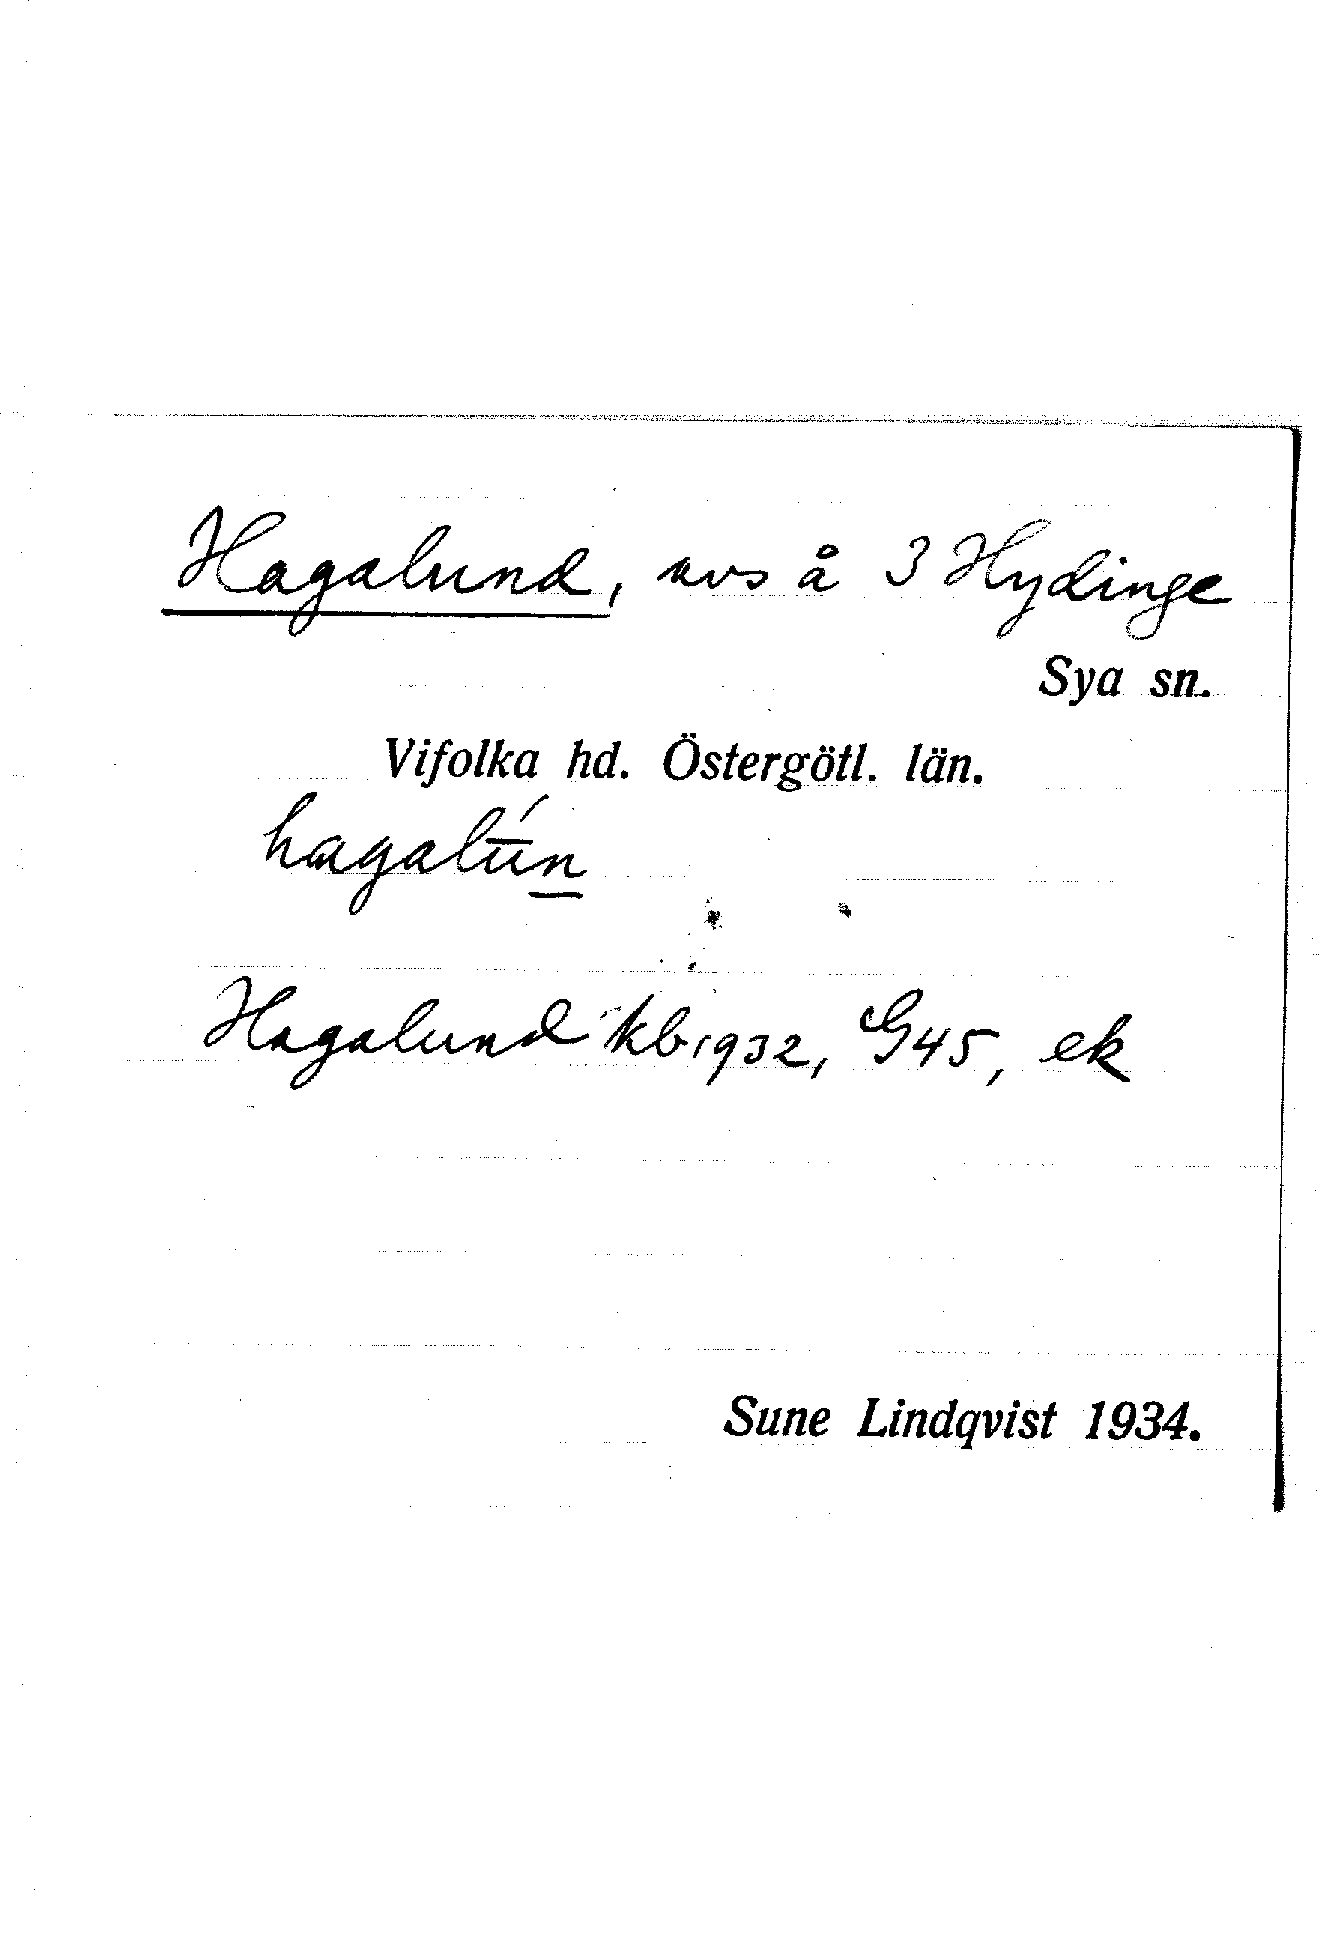 Hagalund, avs å 3 Hydinge
Sya sn.
Vifolka hd. Östergötl. län.
hagalū́n̲
Hagalund kb 1932, G45, ek
Sune Lindqvist 1934.